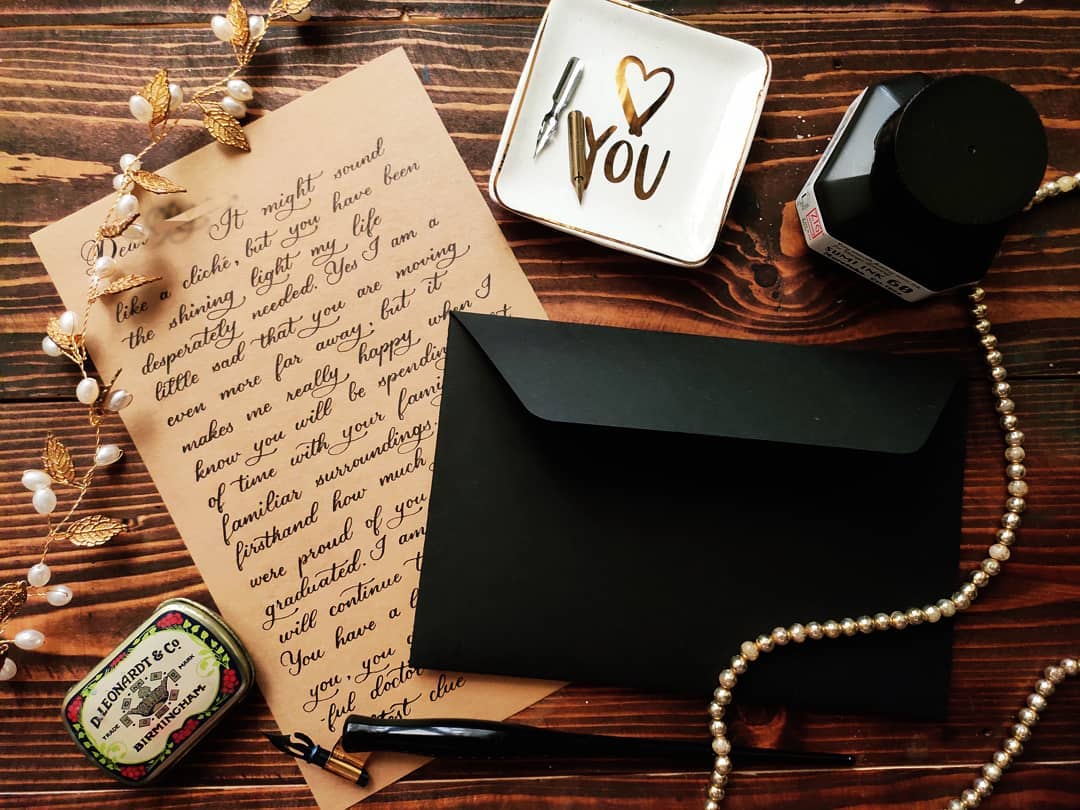 Dear
It might sound
like a cliché, but you have been
the shining light my life
desperately needed. Yes I am a
little sad that you are moving
even more far away, but it
makes me really happy when I
know you will be spending
of time with your
familiar surroundings.
firsthand how much
were proud of you
graduated. I am
will continue
You have a
you, you
ful doctor
clue
YOU
ZIG
SUMI INK 60
D. LEONARDT & Co
TRADE MARK
BIRMINGHAM